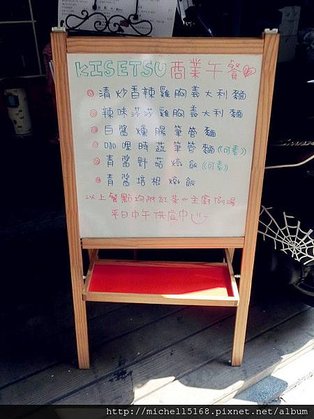 KISETSU 商業午餐
① 清炒香辣雞胸義大利麵
② 辣味 雞胸義大利麵
③ 白醬燻腸筆管麵
④ 咖哩時蔬筆管麵(可素)
⑤ 青醬野菇燉飯(可素)
⑥ 青醬培根燉飯
以上餐點均附紅茶
平日中午供應中
http://michell5168.pixnet.net/album